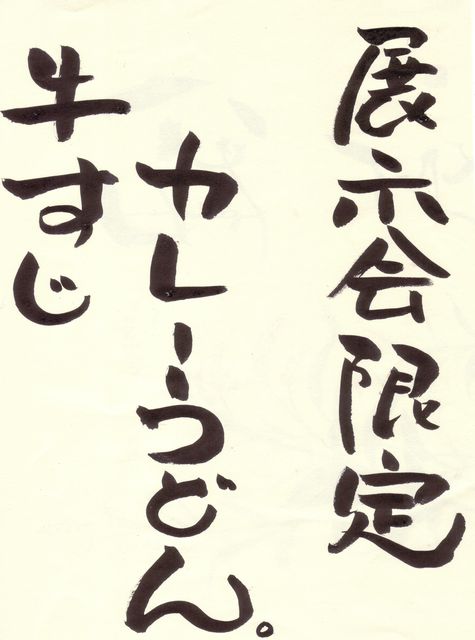 展示会限定
牛すじ
カレーうどん。